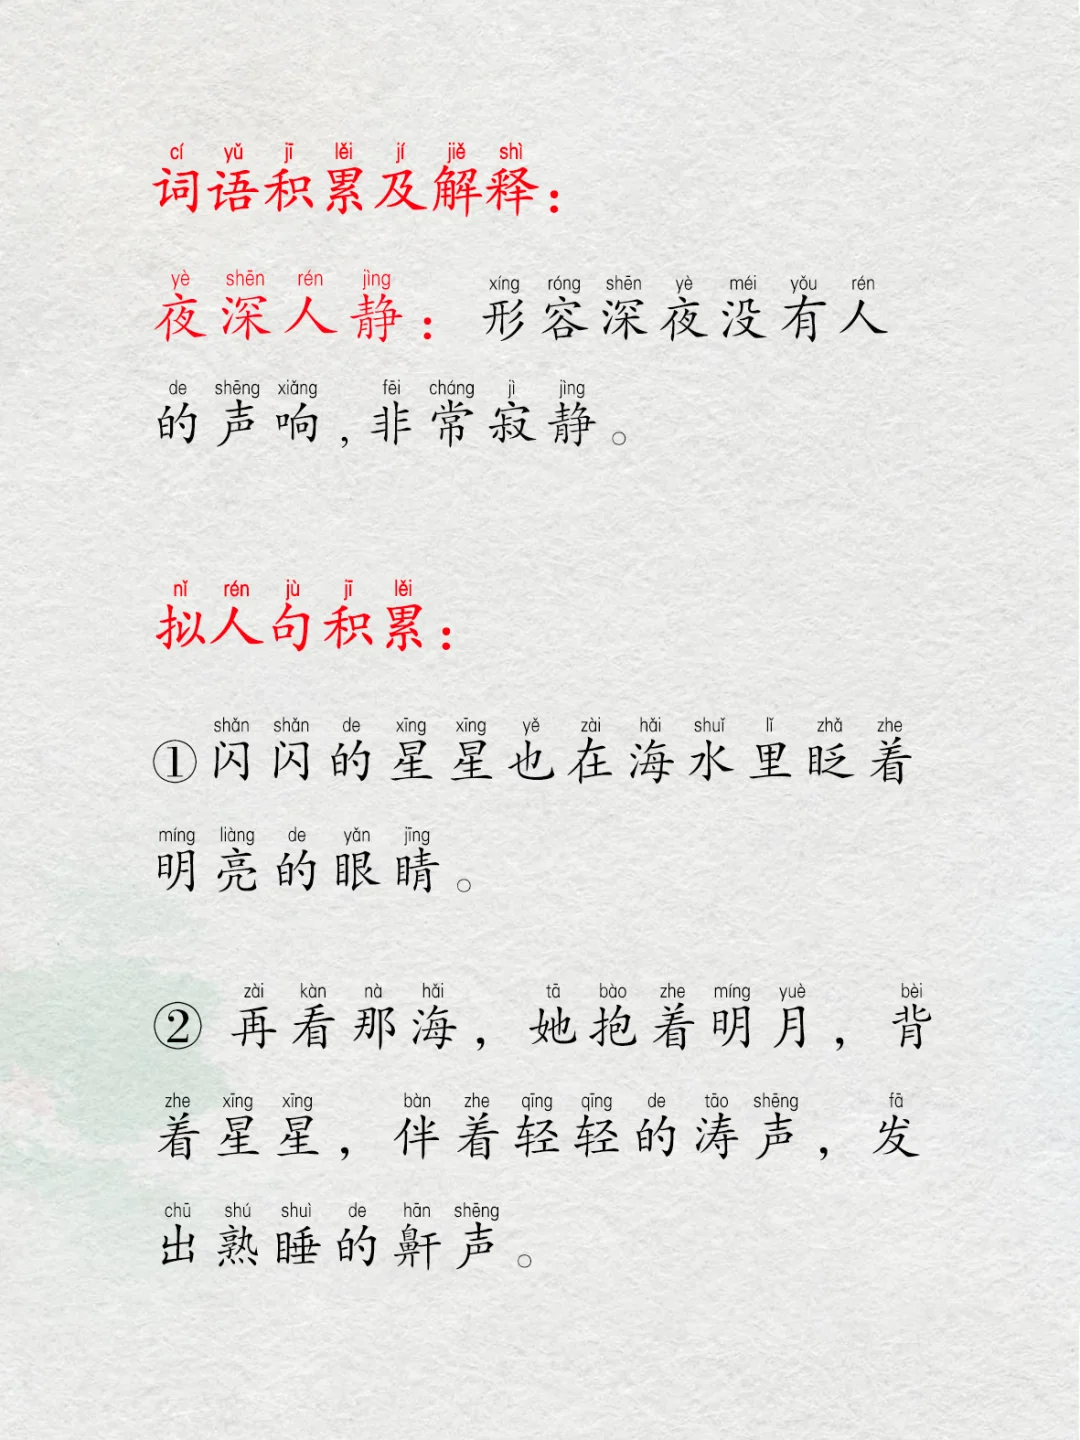 cí yǔ jī lěi jí jiě shì
词语积累及解释：
yè shēn rén jìng xíng róng shēn yè méi yǒu rén
夜深人静：形容深夜没有人
de shēng xiǎng fēi cháng jì jìng
的声响，非常寂静。
nǐ rén jù jī lěi
拟人句积累：
shǎn shǎn de xīng xīng yě zài hǎi shuǐ lǐ zhǎ zhe
①闪闪的星星也在海水里眨着
míng liàng de yǎn jīng
明亮的眼睛。
zài kàn nà hǎi tā bào zhe míng yuè bèi
②再看那海，她抱着明月，背
zhe xīng xīng bàn zhe qīng qīng de tāo shēng fā
着星星，伴着轻轻的涛声，发
chū shú shuì de hān shēng
出熟睡的鼾声。